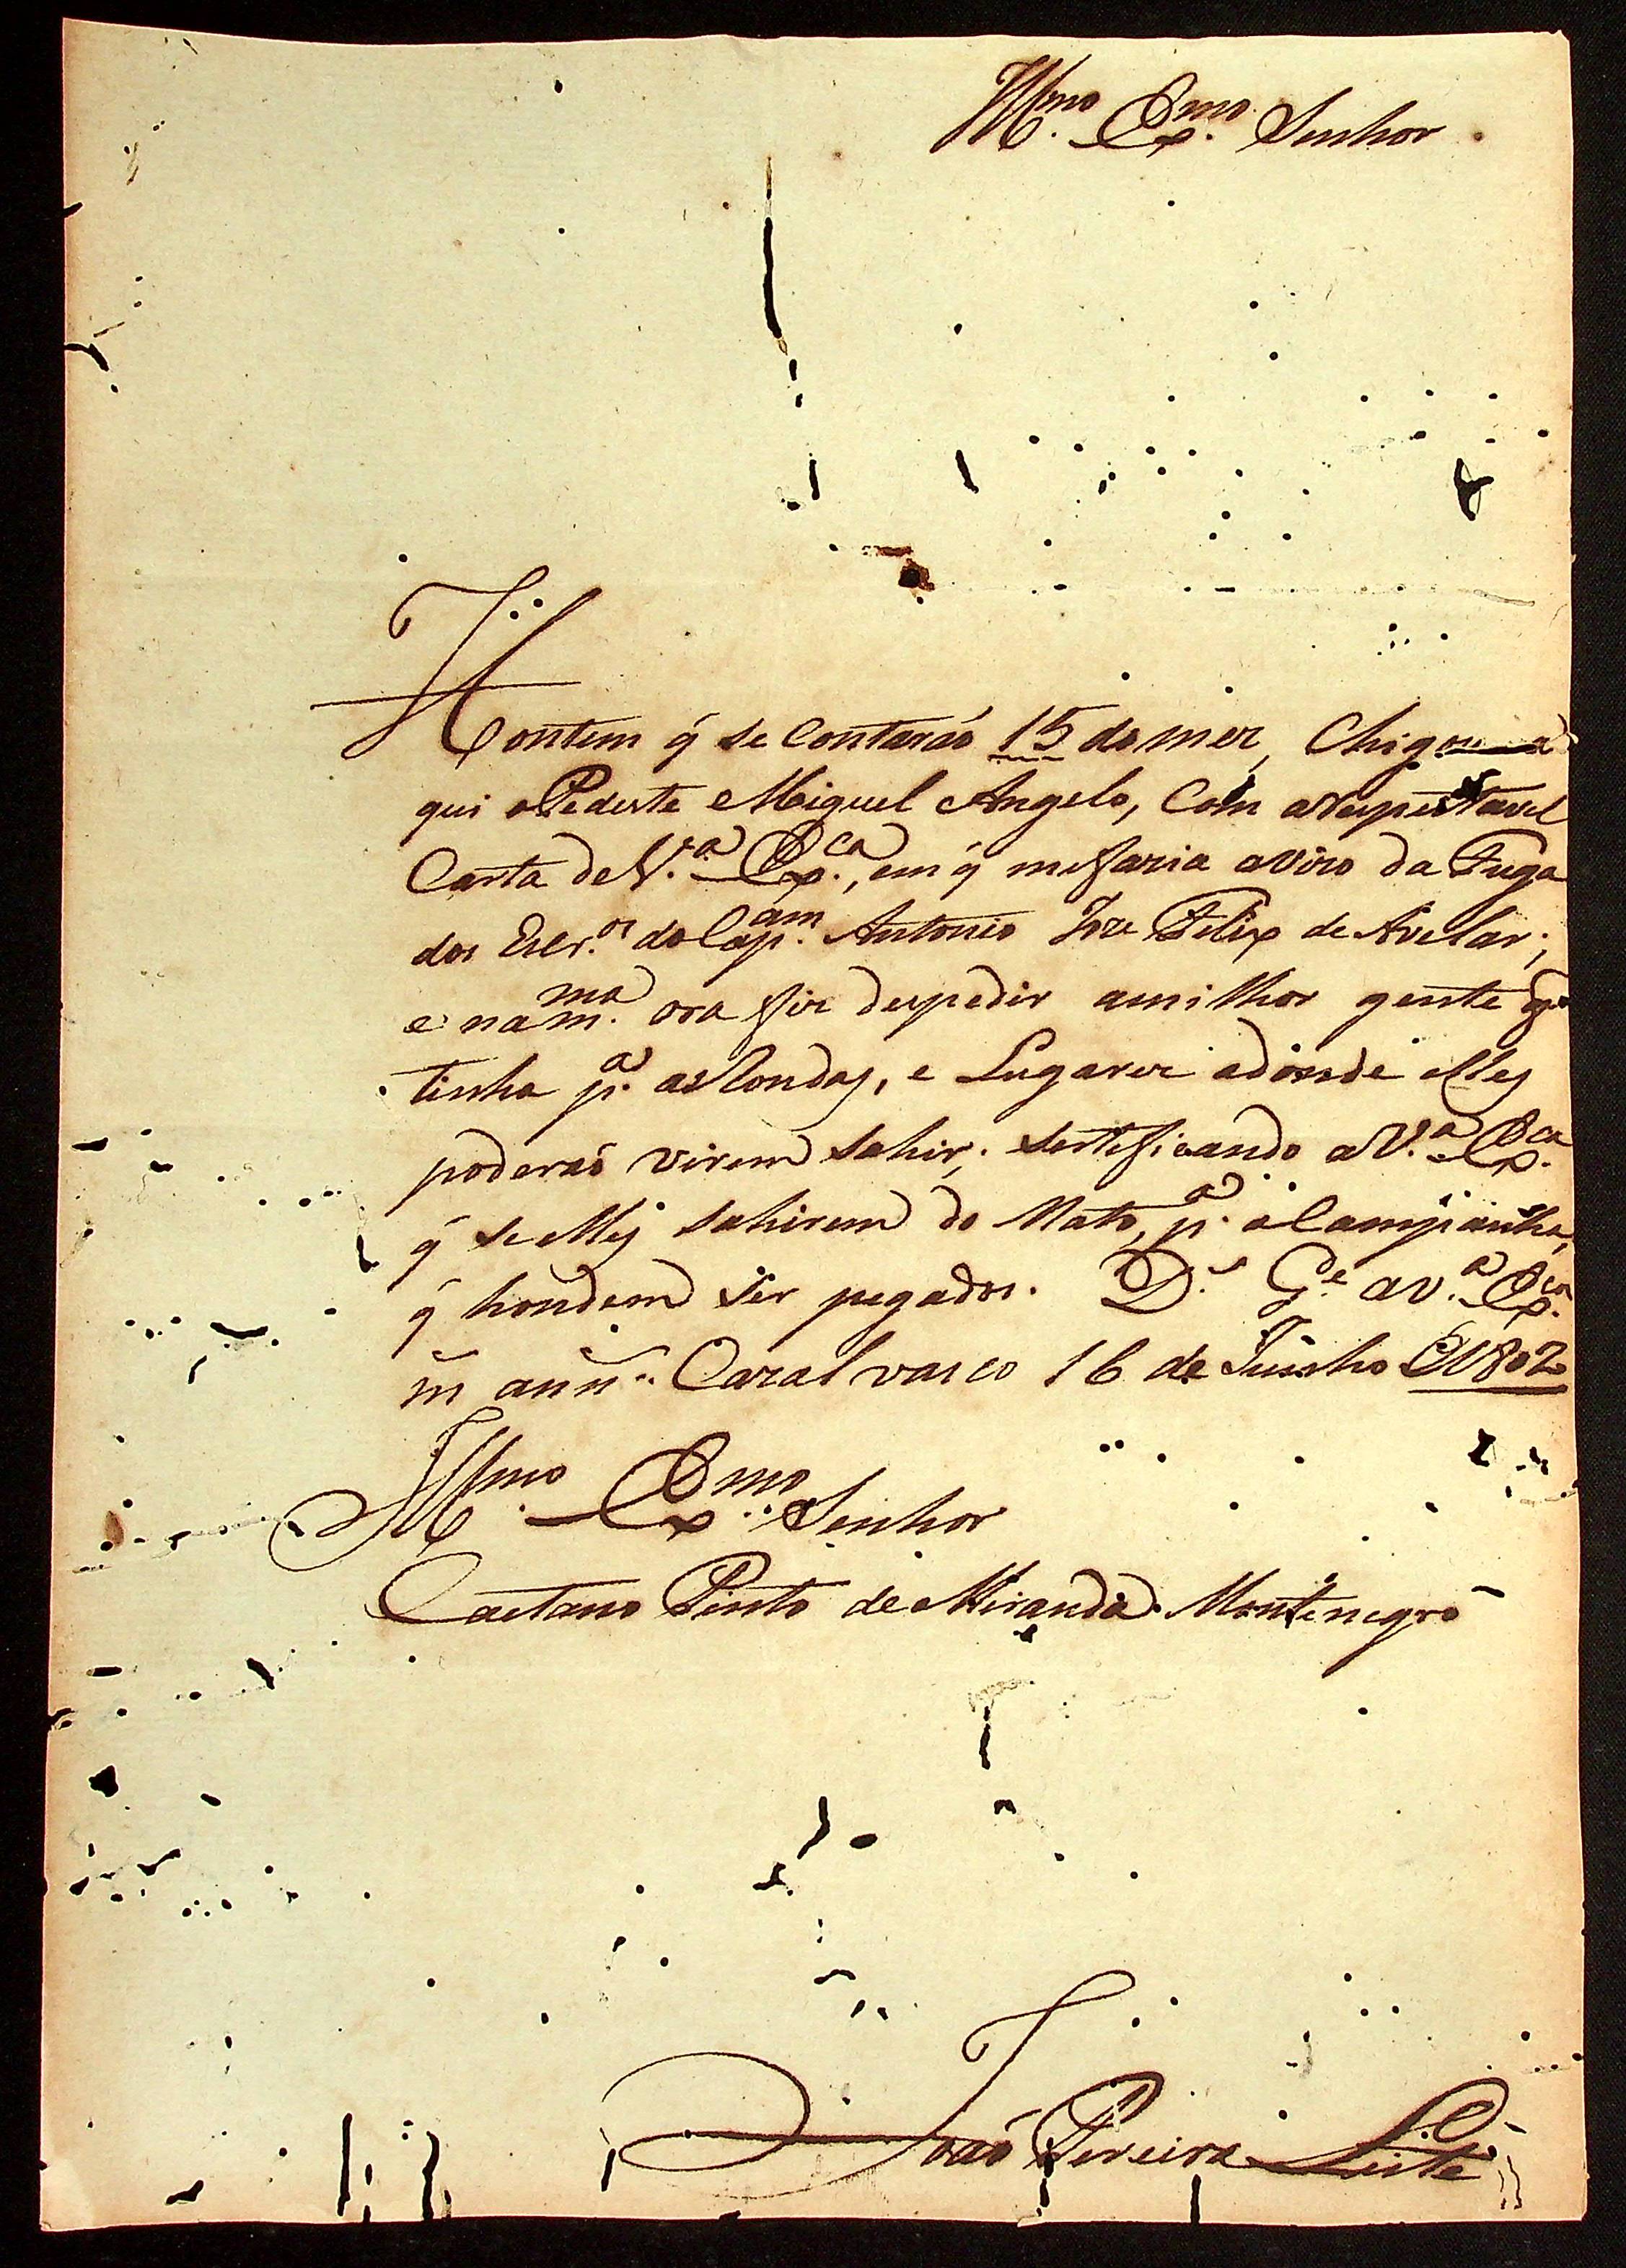 Illmo. Exmo. Senhor
Hontem q̃ se Contaraó 15 do mez, Chigou a
qui o Pedeste Miguel Angelo, Com a respeitavel
Carta de V.a Ex.ca, em q̃ me fazia avizo da Fuga
dos Escr.os do Cap.am Antonio Joze Felix de Avelar;
e na m.ma ora fiz despedir a milhor gente q̃
tinha p.a as Rondas, e Lugarez adonde elles
poderaó virem sahir; sertificando a V.a Ex.ca
q̃ se elles sahirem do Mato, p.a a Campanha,
q̃ hondem ser pegados. D.s G.e a V.a Ex.ca
m̃ ann.s Cazalvasco 16 de Junho de 1802
Illmo. Exmo. Senhor
Caetano Pinto de Miranda Montenegro
Joaó Pereira Leite